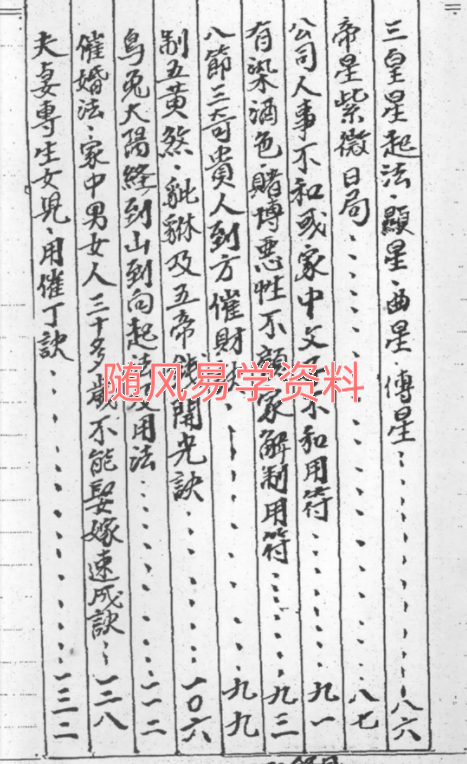 三皇星起法、顯星曲星傅星⋯⋯八六
帝星紫微日局⋯⋯八七
公司人事不和或家中父子不和用符⋯⋯九一
有染酒色賭博惡性不顧家解制用符⋯⋯九三
八節三奇貴人到方催財法⋯⋯九九
制五黃煞、貔貅及五帝錢開光訣⋯⋯一0六
烏兔太陽經到山到向起法及用法⋯⋯一一二
催婚法、家中男女人三十多歲不能娶嫁速成訣⋯⋯一二八
夫妻專生女兒、用催丁訣⋯⋯一三二
随风易学资料